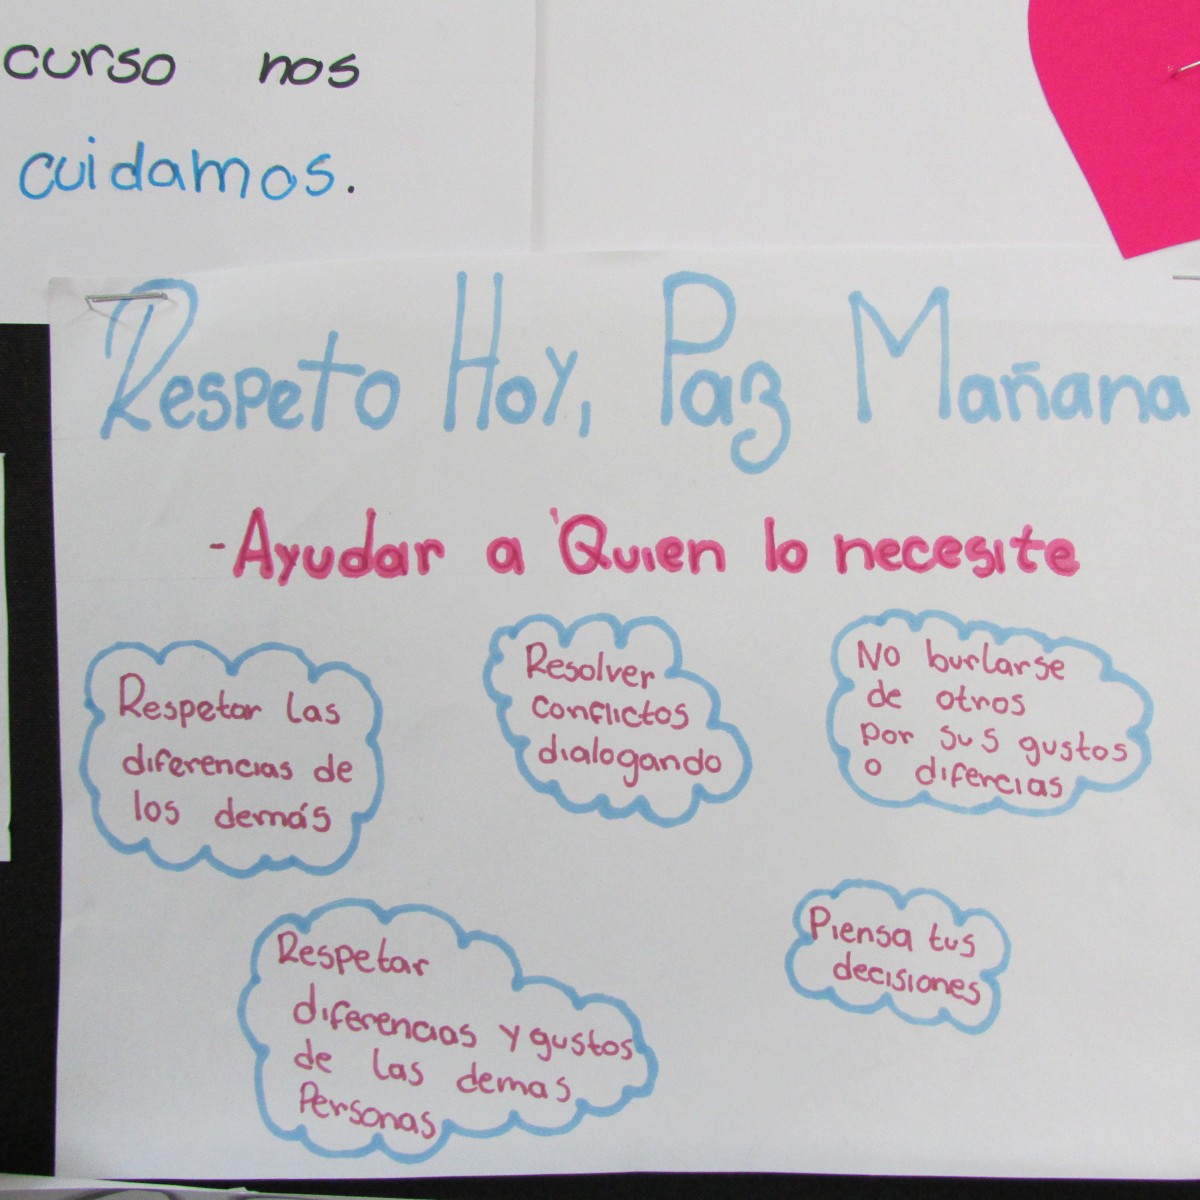 curso nos
cuidamos.
Respeto Hoy, Paz Mañana
-Ayudar a Quien lo necesite
Respetar las
diferencias de
los demás
Resolver
conflictos
dialogando
No burlarse
de otros
por sus gustos
o difercias
Respetar
diferencias y gustos
de las demas
Personas
Piensa tus
decisiones